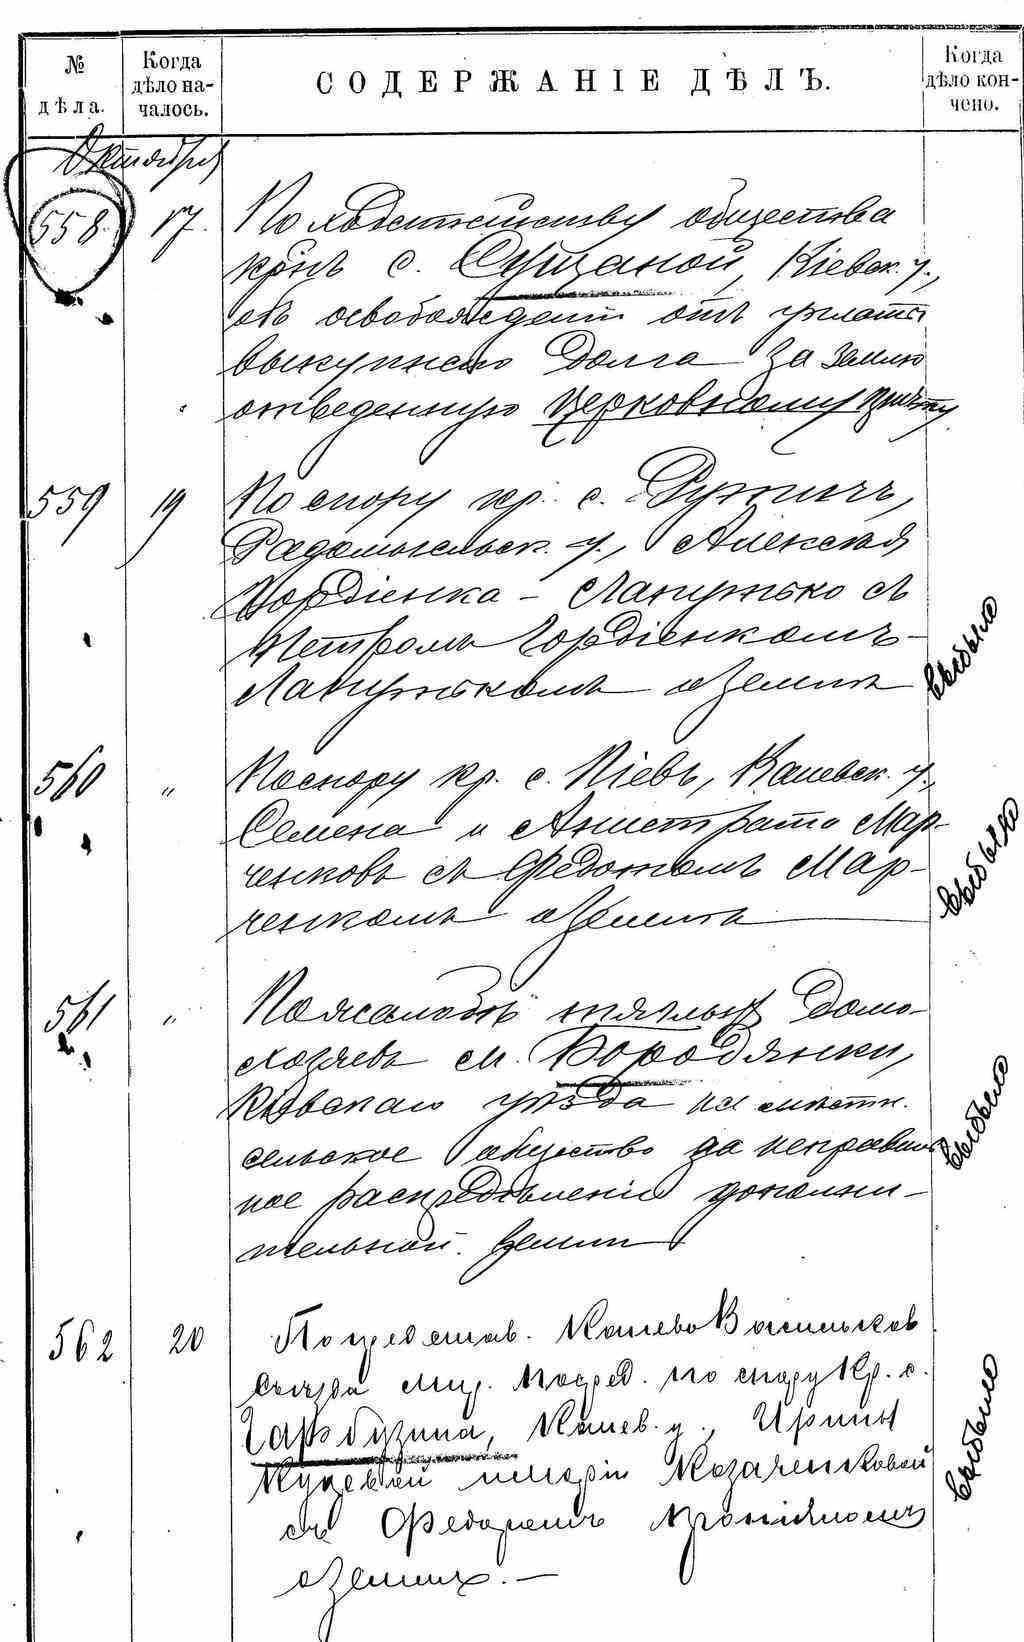 № дѣла.
Когда дѣло началось.
СОДЕРЖАНІЕ ДѢЛЪ.
Когда дѣло кончено.
Октября
558. 17. По ходатайству общества
крнъ с. Сущаной, Кіевск. у.,
объ освобожденіи отъ уплаты
выкупнаго долга за землю
отведенную церковному причту
559 19 По спору кр. с.
Радомысльск. у., Алексѣя
Гордіенка - Лапутько съ
Петромъ Гордіенкомъ-
Лапутькомъ о землѣ
выбыло
560 „ По спору кр. с. Піевъ, Каневск. у.,
Семена и Анистрата Мар-
ченковъ съ Федотомъ Мар-
ченкомъ о землѣ
выбыло
561 „ По жалобѣ тяглыхъ домо-
хозяевъ м. Бородянки,
Кіевскаго уѣзда на мѣстн.
сельское общество за неправиль
ное распредѣленіе дополни-
тельной земли
выбыло
562 20 По представ. Канево Васильков
съѣзда Мир. Посред. по спору Кр. с.
Гарбузина, Канев. у., Ирины
Казаченковой
съ Федоромъ
о земли. —
выбыло